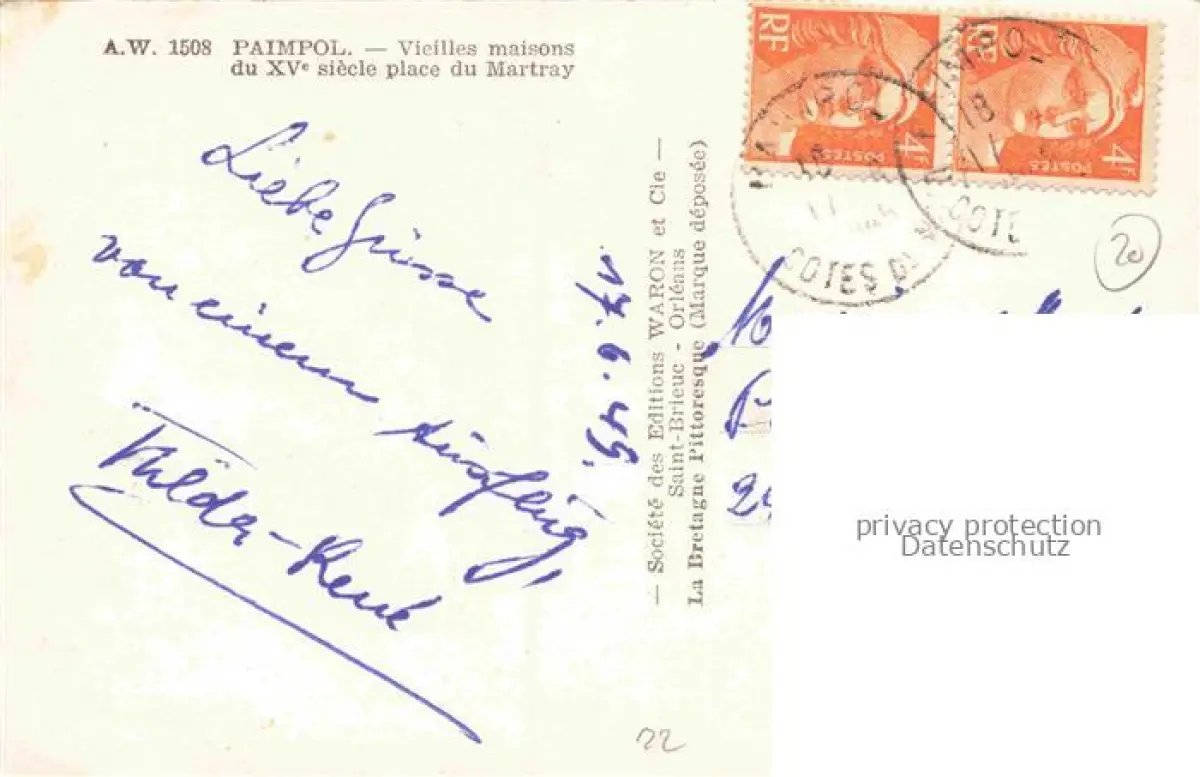 A.W. 1508 PAIMPOL. — Vieilles maisons
du XVe siècle place du Martray
Liebe Grüsse
von einem Ausflug,
Hilda-René
17.6.49.
— Société des Editions WARON et Cie —
Saint-Brieuc - Orléans
La Bretagne Pittoresque (Marque déposée)
RF
POSTES
4F
RF
POSTES
4F
18
COTES DU
18
COTE
20
privacy protection
Datenschutz
22